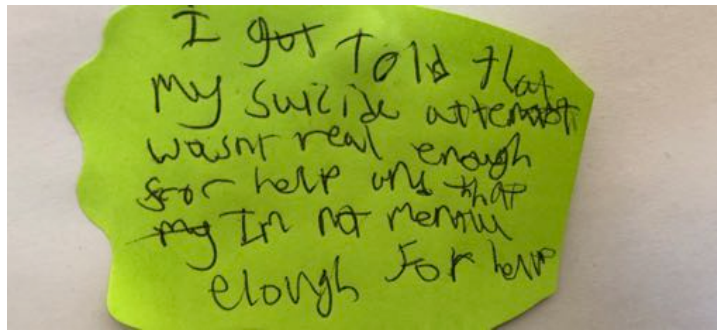 I got Told that
my suicide attempt
wasnt real enough
for help and that
my Im not mentill
elough For help